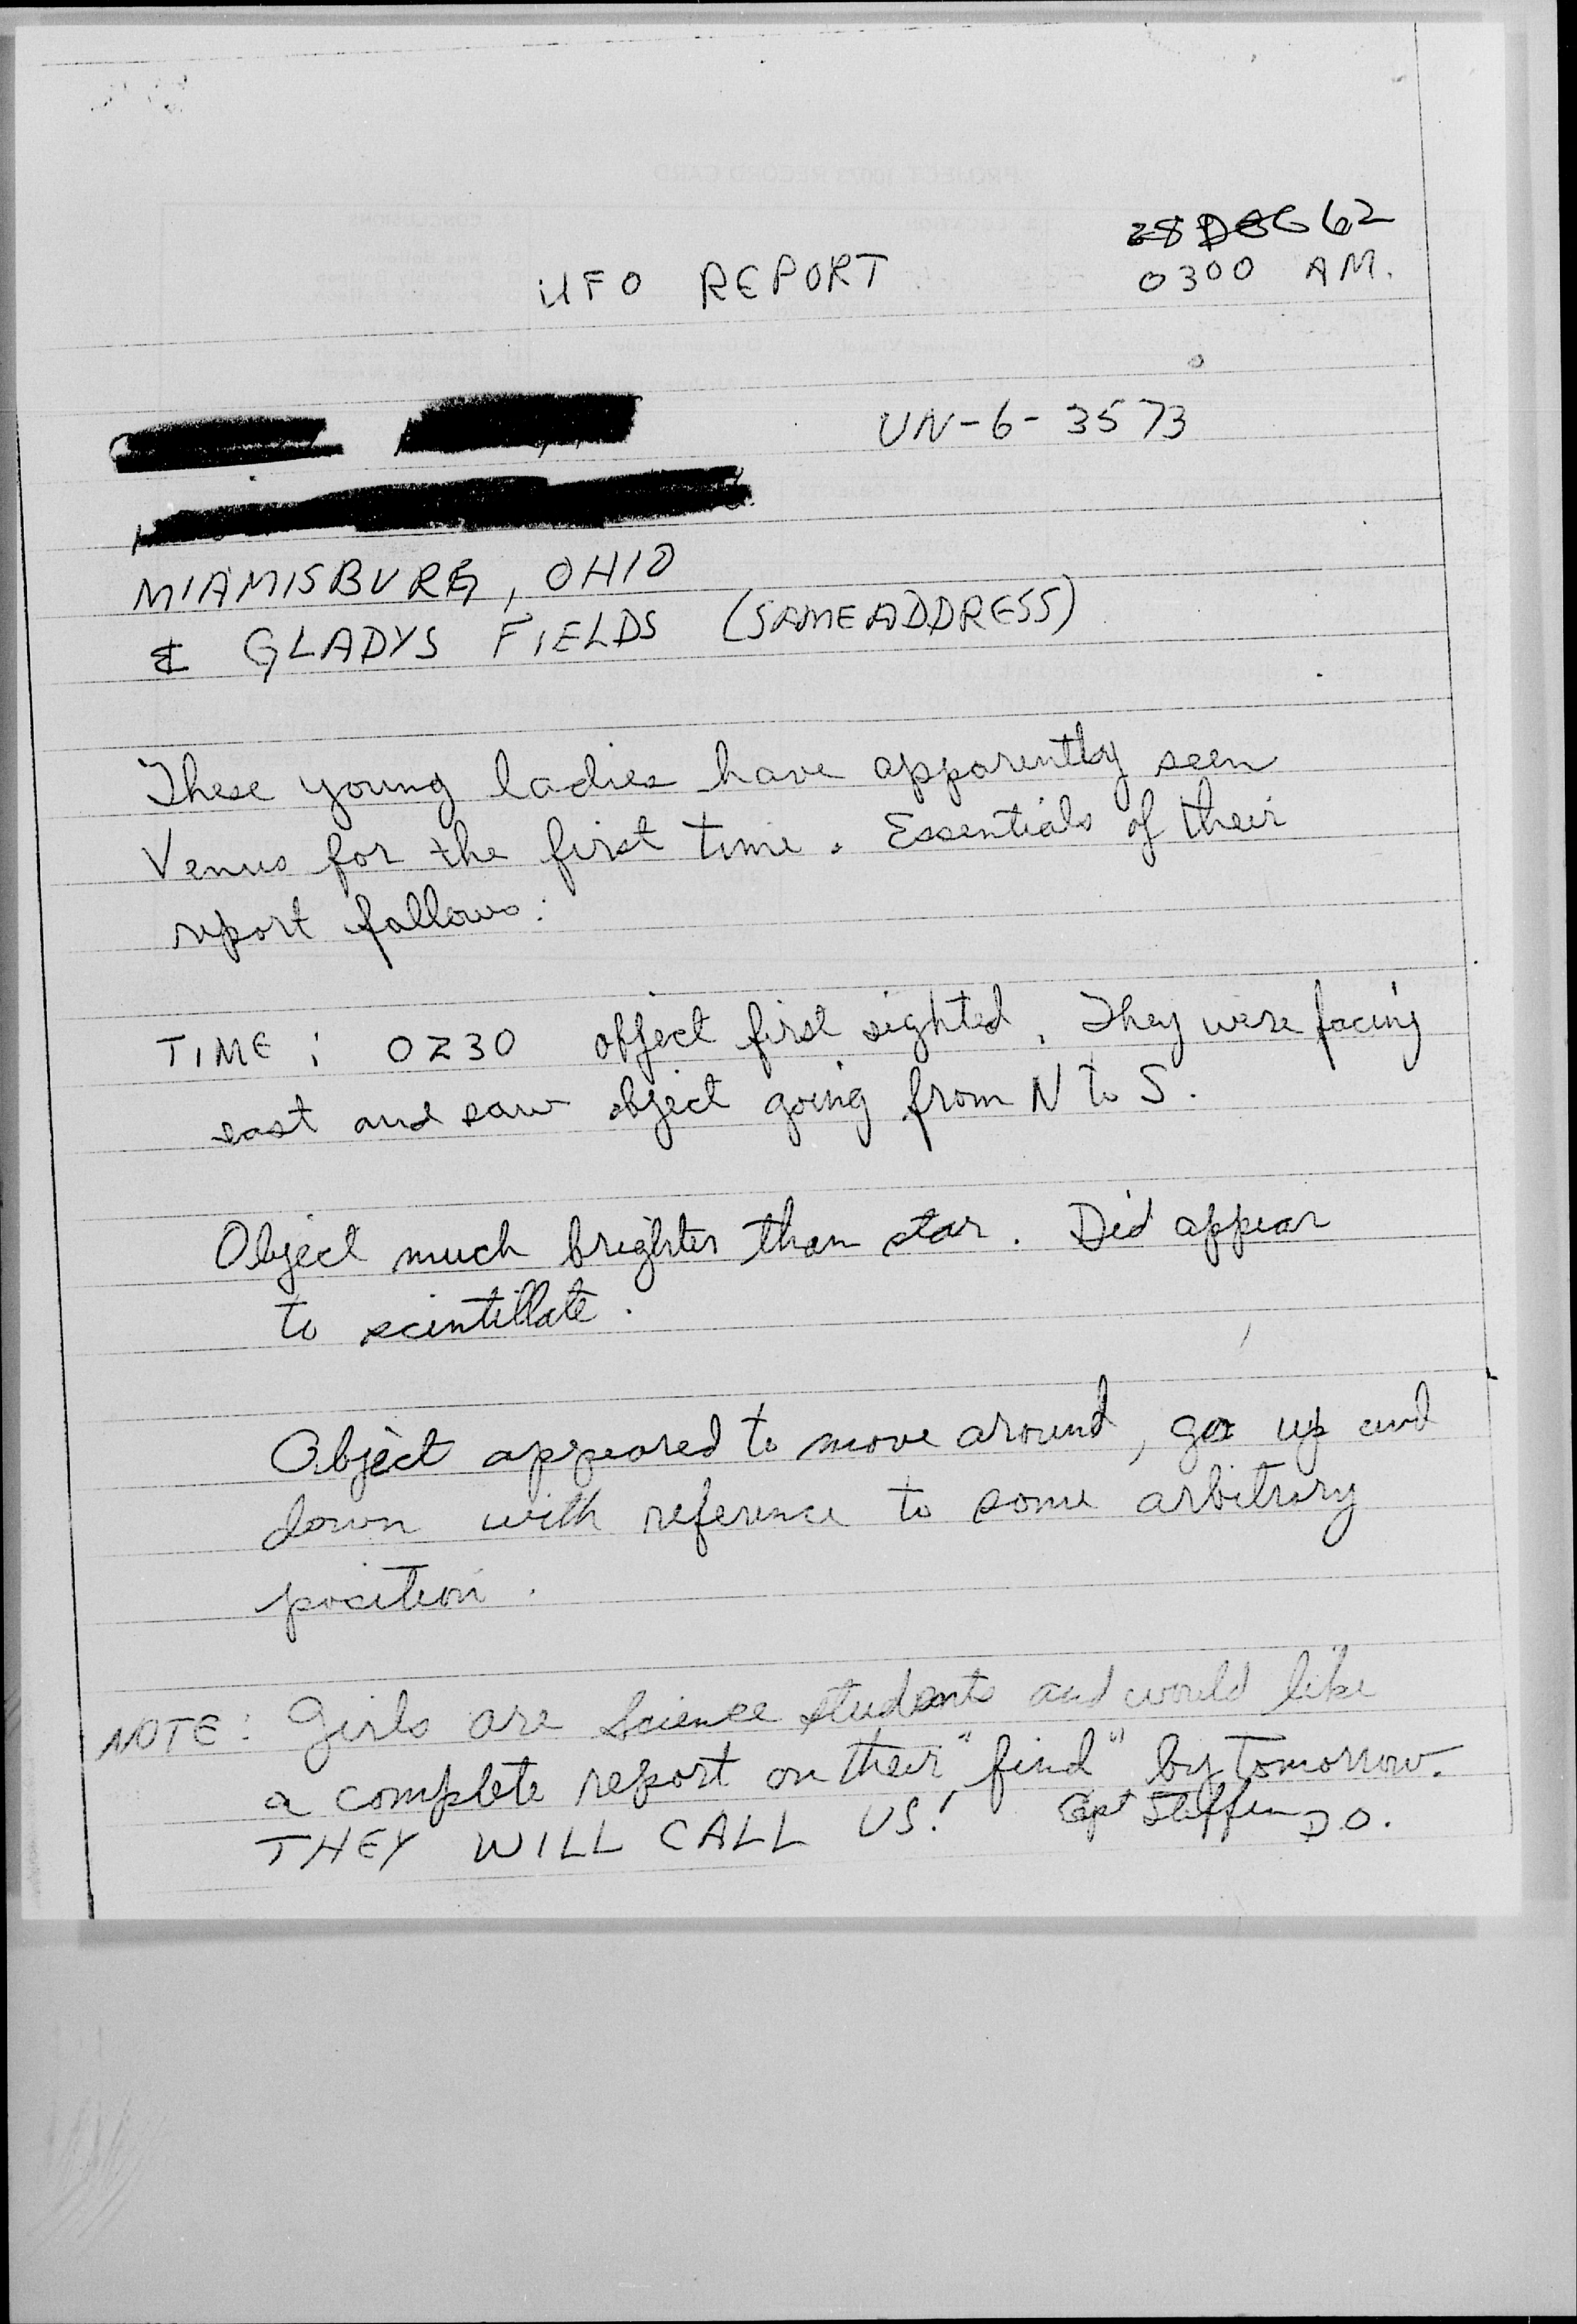 28 DEC 62
UFO REPORT
0300 AM.
UN-6-3573
MIAMISBURG, OHIO
& GLADYS FIELDS (SAME ADDRESS)
These young ladies have apparently seen
Venus for the first time. Essentials of their
report follows:
TIME: 0230 object first sighted. They were facing
east and saw object going from N to S.
Object much brighter than star. Did appear
to scintillate.
Object appeared to move around, go up and
down with reference to some arbitrary
position.
NOTE: Girls are Science students and would like
a complete report on their "find" by tomorrow.
THEY WILL CALL US! Capt Steffen D O.